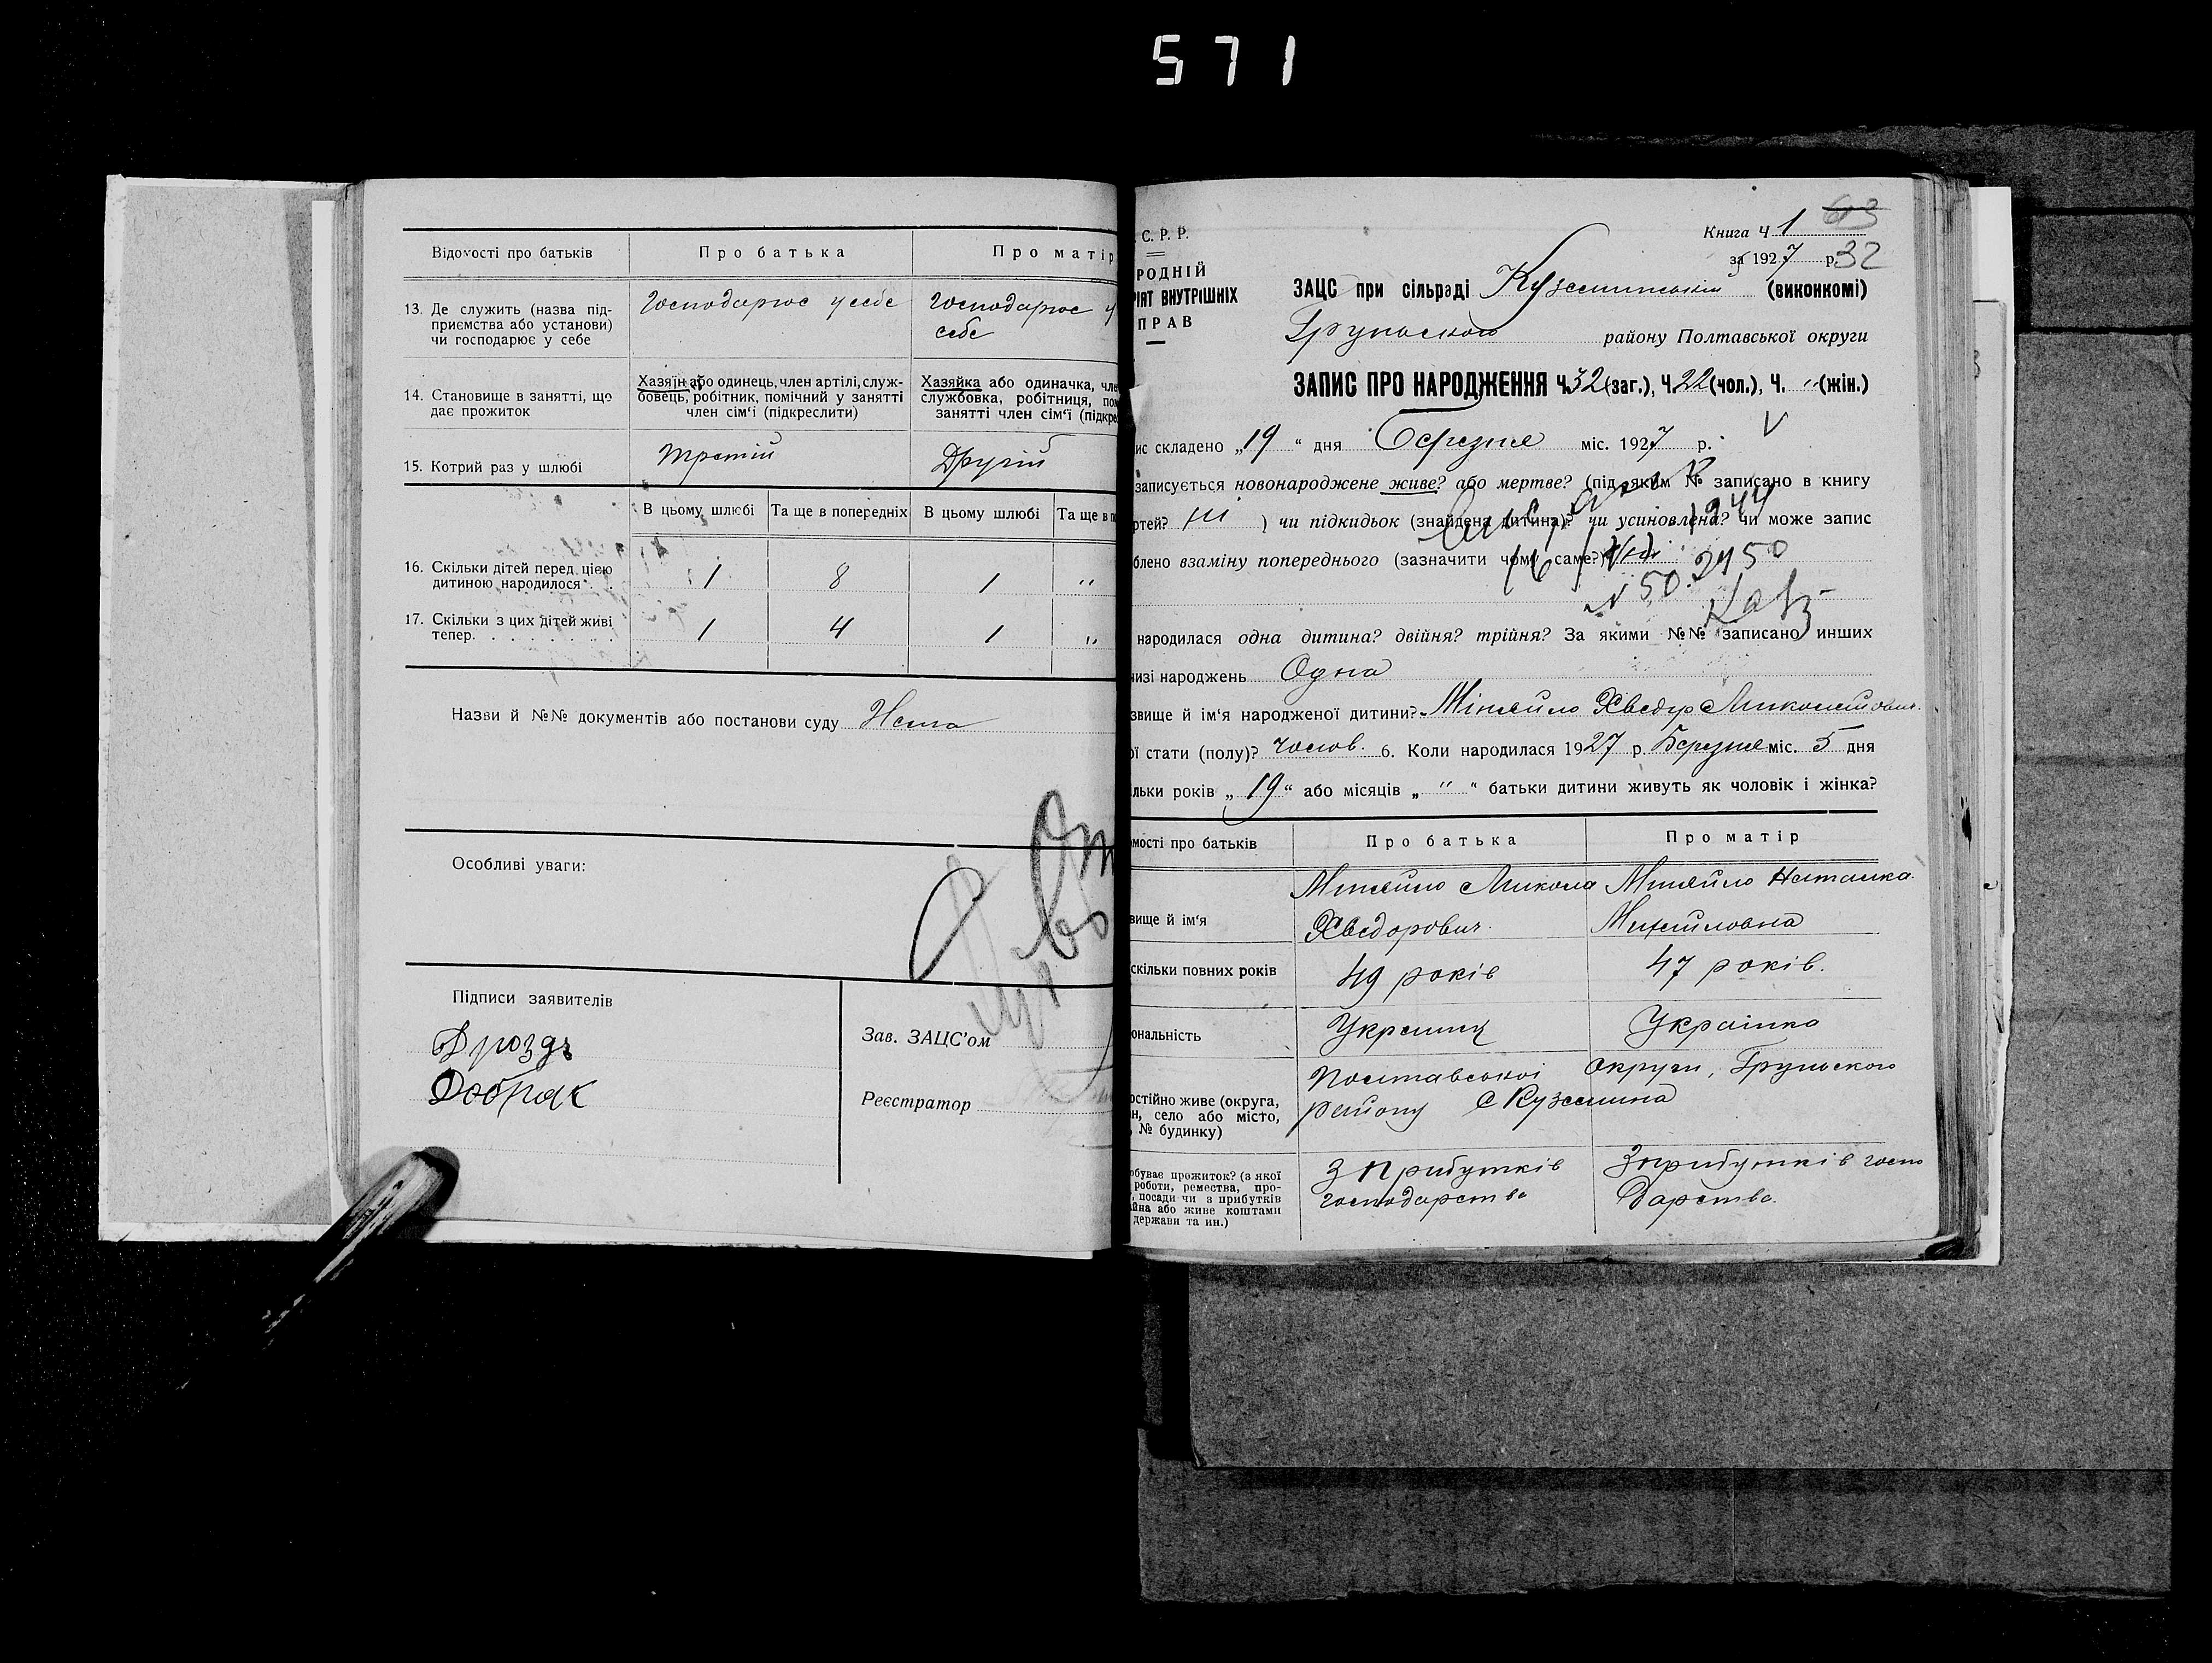 571
Відомості про батьків
Про батька
Про матір
13. Де служить (назва під-
приємства або установи)
чи господарює у себе
Господарює у себе
Господарює у
себе
14. Становище в занятті, що
дає прожиток
Хазяїн або одинець, член артілі, служ-
бовець, робітник, помічний у занятті
член сім'ї (підкреслити)
Хазяйка або одиначка, чле
службовка, робітниця, пом
занятті член сім'ї (підкре
15. Котрий раз у шлюбі
Третій
Другій
В цьому шлюбі
Та ще в попередніх
В цьому шлюбі
Та ще в по
16. Скільки дітей перед цією
дитиною народилося . .
1
8
1
"
17. Скільки з цих дітей живі
тепер. . . . . . . .
1
4
1
"
Назви й №№ документів або постанови суду Нема
Особливі уваги:
Підписи заявителів
Дроздъ
Добряк
Зав. ЗАЦС'ом
Реєстратор
. С. Р. Р.
РОДНІЙ
РІЯТ ВНУТРІШНІХ
ПРАВ
Книга Ч 1 63
за 1927 р. 32
ЗАЦС при сільраді Куземинській (виконкомі)
Груньского району Полтавської округи
ЗАПИС ПРО НАРОДЖЕННЯ Ч. 32 (заг.), Ч. 22 (чол.), Ч. " (жін.)
ис складено „19" дня Березня міс. 1927 р.
записується новонароджене живе? або мертве? (під яким № записано в книгу
ртей? ) чи підкидьок (знайдена дитина)? чи усиновлена? чи може запис
1944
блено взаміну попереднього (зазначити чому саме?)
2450
N 50.
народилася одна дитина? двійня? трійня? За якими №№ записано инших
изі народжень Одна
звище й ім'я народженої дитини? Міняйло Хведір Миколайович
ої стати (полу)? чолов. 6. Коли народилася 1927 р. Березня міс. 5 дня
льки років „19" або місяців „ " " батьки дитини живуть як чоловік і жінка?
мості про батьків
Про батька
Про матір
вище й ім'я
Міняйло Микола
Хведорович
Міняйло Наталка
Михайловна
скільки повних років
49 років
47 років.
ональність
Українц
Українка
остійно живе (округа,
н, село або місто,
, № будинку)
Полтавської округи, Груньского
району с Куземина
обуває прожиток? (з якої
роботи, ремества, про-
, посади чи з прибутків
айна або живе коштами
держави та ин.)
З прибутків
господарства
З прибутків госпо
дарства.